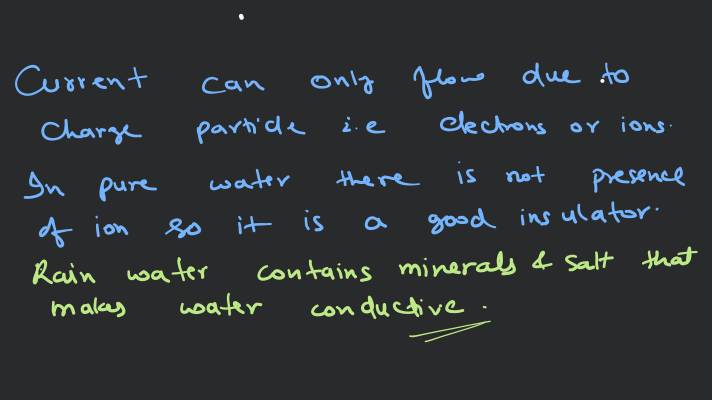 Current can only flow due to
charge particle i.e electrons or ions.
In pure water there is not presence
of ion so it is a good insulator.
Rain water contains minerals & salt that
makes water conductive.